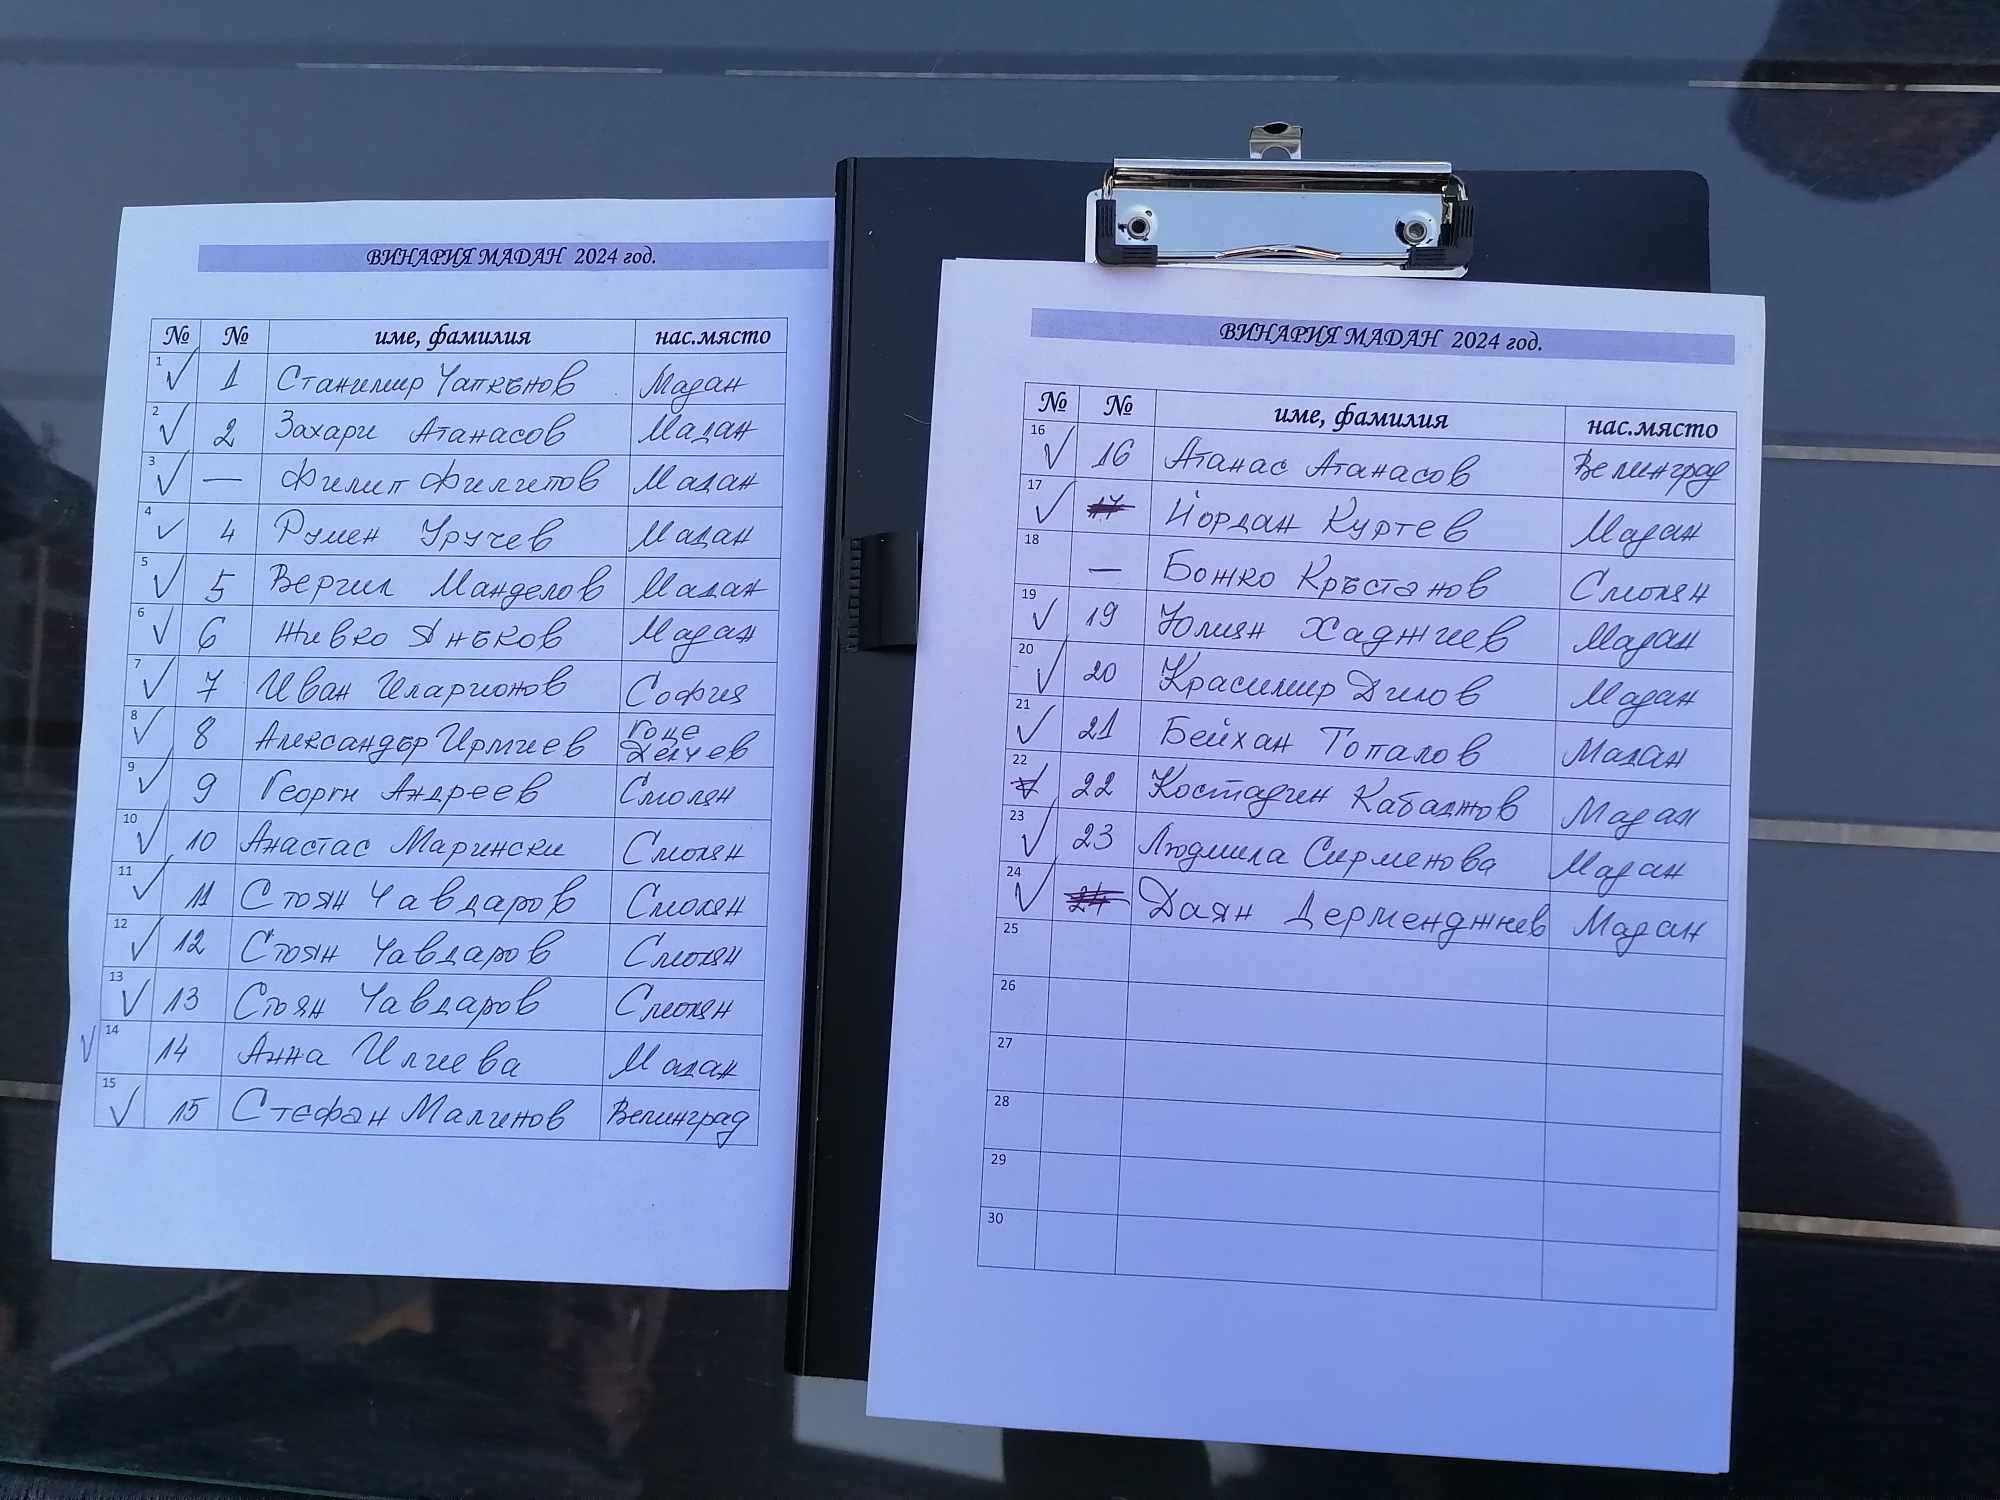 ВИНАРИЯ МАДАН 2024 год.
№ № име, фамилия нас.място
1 ✓ 1 Станимир Чапкънов Мадан
2 ✓ 2 Захари Атанасов Мадан
3 ✓ — Филип Филипов Мадан
4 ✓ 4 Румен Уручев Мадан
5 ✓ 5 Вергил Манделов Мадан
6 ✓ 6 Живко Янъков Мадан
7 ✓ 7 Иван Иларионов София
8 ✓ 8 Александър Ирмиев Гоце Делчев
9 ✓ 9 Георги Андреев Смолян
10 ✓ 10 Анастас Марински Смолян
11 ✓ 11 Стоян Чавдаров Смолян
12 ✓ 12 Стоян Чавдаров Смолян
13 ✓ 13 Стоян Чавдаров Смолян
14 ✓ 14 Анна Илиева Мадан
15 ✓ 15 Стефан Малинов Велинград
ВИНАРИЯ МАДАН 2024 год.
№ № име, фамилия нас.място
16 ✓ 16 Атанас Атанасов Велинград
17 ✓ 17 Йордан Куртев Мадан
18 — Божко Кръстанов Смолян
19 ✓ 19 Юлиян Хаджиев Мадан
20 ✓ 20 Красимир Дилов Мадан
21 ✓ 21 Бейхан Топалов Мадан
22 ✓ 22 Костадин Кабаджов Мадан
23 ✓ 23 Людмила Сирменова Мадан
24 ✓ 24 Даян Дерменджиев Мадан
25
26
27
28
29
30